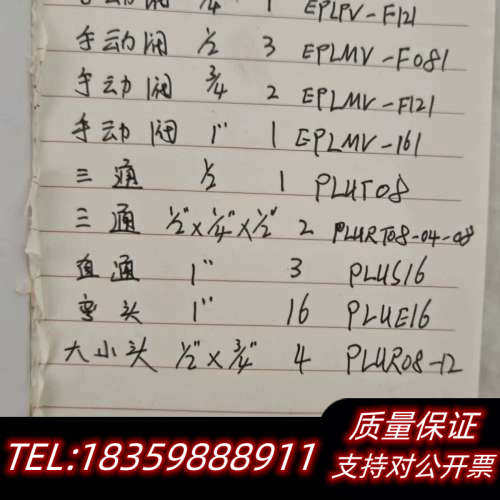 手动阀 3/4 1 EPLPV-F121
手动阀 1/2 3 EPLMV-F081
手动阀 3/4 2 EPLMV-F121
手动阀 1" 1 EPLMV-161
三通 1/2 1 PLUT08
三通 1/2"×1/4"×1/2" 2 PLURT08-04-08
直通 1" 3 PLUS16
弯头 1" 16 PLUE16
大小头 1/2"×3/4" 4 PLUR08-12
质量保证
TEL:18359888911 支持对公开票